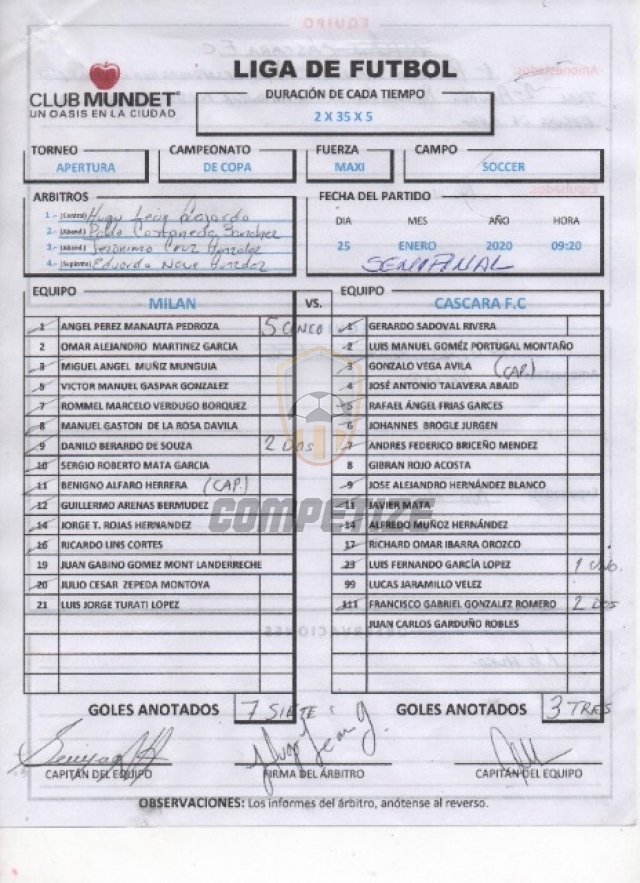 EQUIPO
LIGA DE FUTBOL
CLUB MUNDET
UN OASIS EN LA CIUDAD
DURACIÓN DE CADA TIEMPO
2 X 35 X 5
TORNEO CAMPEONATO FUERZA CAMPO
APERTURA DE COPA MAXI SOCCER
ARBITROS FECHA DEL PARTIDO
1.- (Central) Hugo León
2.- (Aband) Pablo Castañeda Sanchez
3.- (Aband) Jeronimo Cruz González
4.- (Suplente) Eduardo
DIA MES AÑO HORA
25 ENERO 2020 09:20
SEMIFINAL
EQUIPO MILAN VS. EQUIPO CASCARA F.C
1 ANGEL PEREZ MANAUTA PEDROZA 5 CINCO 1 GERARDO SADOVAL RIVERA
2 OMAR ALEJANDRO MARTINEZ GARCIA 2 LUIS MANUEL GOMÉZ PORTUGAL MONTAÑO
3 MIGUEL ANGEL MUÑIZ MUNGUIA 3 GONZALO VEGA AVILA (CAP.)
5 VICTOR MANUEL GASPAR GONZALEZ 4 JOSÉ ANTONIO TALAVERA ABAID
7 ROMMEL MARCELO VERDUGO BORQUEZ 5 RAFAEL ÁNGEL FRIAS GARCES
8 MANUEL GASTON DE LA ROSA DAVILA 6 JOHANNES BROGLE JURGEN
9 DANILO BERARDO DE SOUZA 2 DOS 7 ANDRES FEDERICO BRICEÑO MENDEZ
10 SERGIO ROBERTO MATA GARCIA 8 GIBRAN ROJO ACOSTA
11 BENIGNO ALFARO HERRERA (CAP.) 9 JOSE ALEJANDRO HERNÁNDEZ BLANCO
12 GUILLERMO ARENAS BERMUDEZ 11 JAVIER MATA
14 JORGE T. ROJAS HERNANDEZ 14 ALFREDO MUÑOZ HERNÁNDEZ
16 RICARDO LINS CORTES 17 RICHARD OMAR IBARRA OROZCO
19 JUAN GABINO GOMEZ MONT LANDERRECHE 23 LUIS FERNANDO GARCÍA LOPEZ 1 UNO.
20 JULIO CESAR ZEPEDA MONTOYA 99 LUCAS JARAMILLO VELEZ
21 LUIS JORGE TURATI LOPEZ 111 FRANCISCO GABRIEL GONZALEZ ROMERO 2 DOS
JUAN CARLOS GARDUÑO ROBLES
COMPETIZE
GOLES ANOTADOS 7 SIETE GOLES ANOTADOS 3 TRES
CAPITÁN DEL EQUIPO FIRMA DEL ÁRBITRO CAPITÁN DEL EQUIPO
OBSERVACIONES: Los informes del árbitro, anótense al reverso.